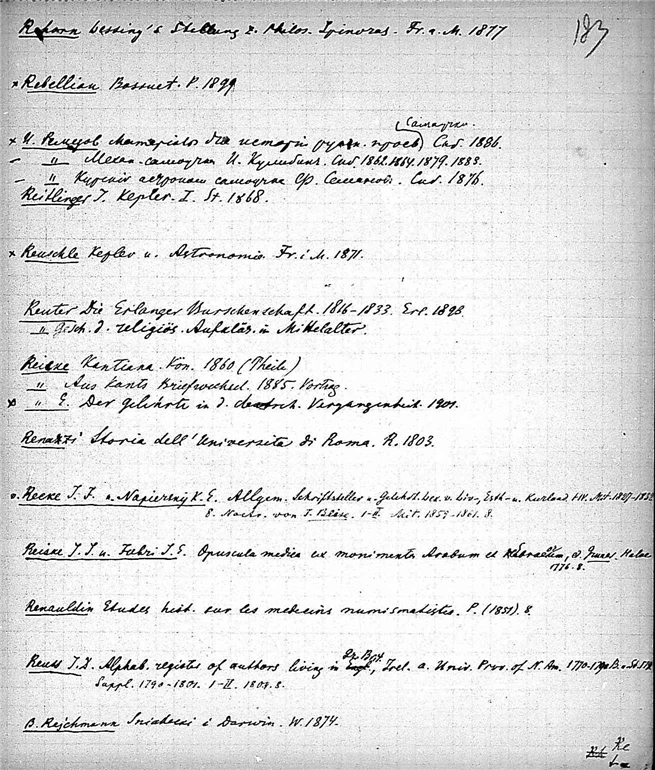 183
Rehorn Lessing's Stellung z. Philos. Spinozas. Fr. a. M. 1877
x Rebelliau Bossuet. P. 1899
Самоучки.
x И. Ремезов Матеріалы для исторіи Спб. 1886.
– " Механ.-самоучка И. Кулибинъ. Спб 1862.1864.1879.1883.
– " астрономъ самоучка Ф. Семеновъ. Спб. 1876.
Reitlinger J. Kepler. I. St. 1868.
x Reuschle Kepler u. Astronomie. Fr. i M. 1871.
Reuter Die Erlanger Burschenschaft. 1816-1833. Erl. 1896
" Gesch. d. religiös. Aufklär. in Mittelalter.
Reicke Kantiana. Kön. 1860 (Theile)
" Aus Kants Briefwechsel. 1885. Vortrag.
x " E. Der Gelehrte in d. deutsch. Vergangenheit. 1901.
Renazzi Storia dell' Università di Roma. R. 1803.
Recke J. F. u. Napiersky K. E. Allgem. Schriftsteller u. Gelehrt. Lex. v. Liv-, Esth- u. Kurland. I-IV. Mit. 1827-1832
8. Nachtr. von T. Beise. I-II Mit. 1859-1861. 8.
Reiske J. J. u. Fabri J. E. Opuscula medica ex monimentis Arabum et Ebraeorum, ed. Gruner. Halae
1776. 8.
Renauldin Etudes hist. sur les medecins numismatistes. P. (1851). 8.
Gr. Brit.
Reuss J. D. Alphab. register of authors living in Engl., Irel. a. Unit. Prov. of N. Am. 1770-1790 B. u. St.
Suppl. 1790-1801. I-II. 1804. 8.
B. Rejchmann Śniadecki i Darwin. W. 1874.
Ke
La